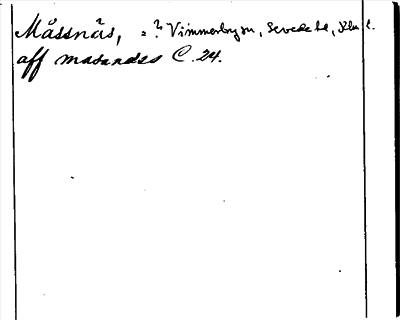 Mässnäs, = ? Vimmerby sn, Sevede hd, Klm l.
aff masandes C. 24.